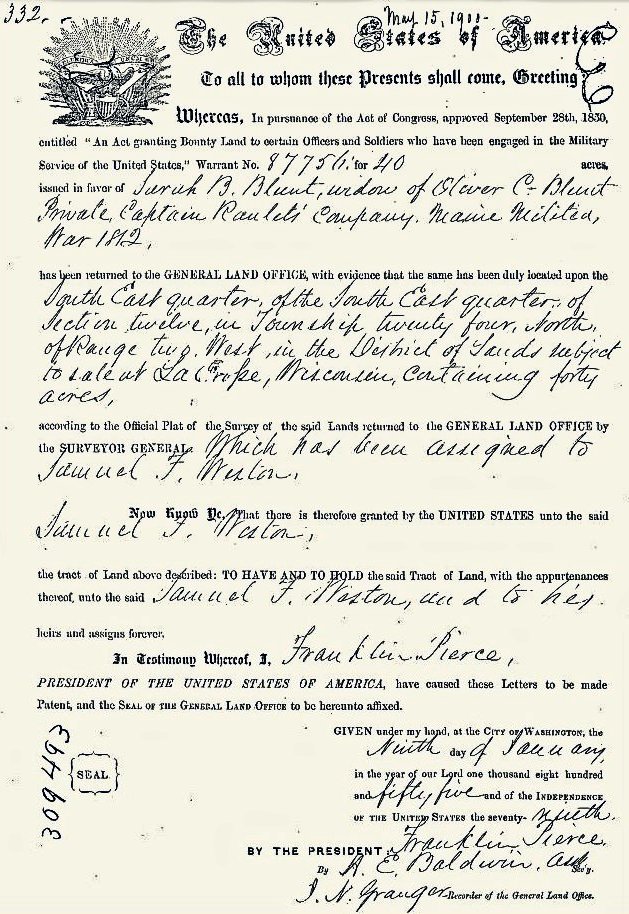 332.
May 15, 1911.
The United States of America
To all to whom these Presents shall come, Greeting:
Whereas, In pursuance of the Act of Congress, approved September 28th, 1850,
entitled "An Act granting Bounty Land to certain Officers and Soldiers who have been engaged in the Military
Service of the United States," Warrant No. 87756. for 40 acres,
issued in favor of Sarah B. Blunt, widow of Oliver C. Blunt
Private, Captain Company. Maine Militia,
War 1812,
has been returned to the GENERAL LAND OFFICE, with evidence that the same has been duly located upon the
South East quarter, of the South East quarter, of
Section twelve, in Township twenty four, North,
of Range two, West, in the District of Lands subject
to sale at La Crosse, Wisconsin, containing forty
acres,
according to the Official Plat of the Survey of the said Lands returned to the GENERAL LAND OFFICE by
the SURVEYOR GENERAL Which has been assigned to
Samuel F. Weston,
Now Know Ye, That there is therefore granted by the UNITED STATES unto the said
Samuel F. Weston,
the tract of Land above described: TO HAVE AND TO HOLD the said Tract of Land, with the appurtenances
thereof, unto the said Samuel F. Weston, and to his
heirs and assigns forever.
In Testimony Whereof, I, Franklin Pierce,
PRESIDENT OF THE UNITED STATES OF AMERICA, have caused these Letters to be made
Patent, and the SEAL OF THE GENERAL LAND OFFICE to be hereunto affixed.
GIVEN under my hand, at the CITY OF WASHINGTON, the
Ninth day of January,
in the year of our Lord one thousand eight hundred
and fifty five and of the INDEPENDENCE
OF THE UNITED STATES the seventy-ninth.
309493
SEAL
BY THE PRESIDENT: Franklin Pierce
By A. E. Baldwin, Sec'y.
J. N. Granger Recorder of the General Land Office.